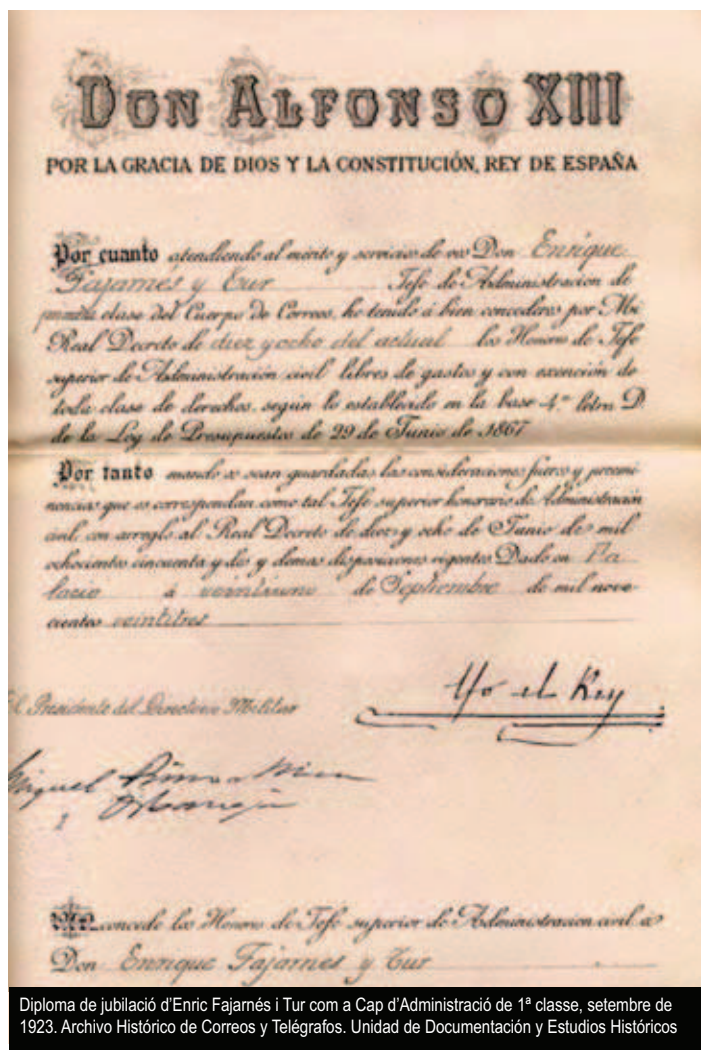 DON ALFONSO XIII
POR LA GRACIA DE DIOS Y LA CONSTITUCIÓN, REY DE ESPAÑA
Por cuanto atendiendo al mérito y servicios de vos Don Enrique
Fajarnes y Tur Jefe de Administración de
primera clase del Cuerpo de Correos, he tenido á bien concederos por Mi
Real Decreto de diez y ocho del actual los Honores de Jefe
superior de Administración civil libres de gastos y con exención de
toda clase de derechos, según lo establecido en la base 4.ª letra D.
de la Ley de Presupuestos de 29 de Junio de 1867
Por tanto mando os sean guardadas las consideraciones fueros y preemi
nencias que os correspondan como tal Jefe superior honorario de Administración
civil con arreglo al Real Decreto de diez y ocho de Junio de mil
ochocientos cincuenta y dos y demas disposiciones vigentes Dado en Pa
lacio á veintiuno de Septiembre de mil nove-
cientos veintitres
Yo el Rey
El Presidente del Directorio Militar
Miguel Primo de Rivera
concede los Honores de Jefe superior de Administracion civil a
Don Enrique Fajarnes y Tur
Diploma de jubilació d'Enric Fajarnés i Tur com a Cap d'Administració de 1ª classe, setembre de
1923. Archivo Histórico de Correos y Telégrafos. Unidad de Documentación y Estudios Históricos